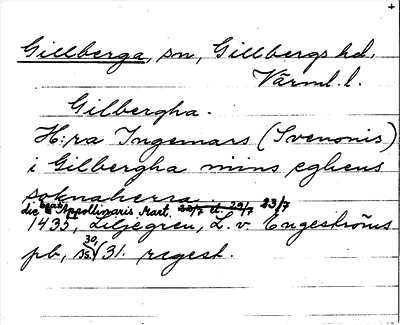 Gillberga, sn, Gillbergs hd,
Värml. l.
Gilbergha.
H:ra Ingemars (Svenonis)
i Gilbergha mins eghens
soknaherra.
die beati Appollinaris Mart. 22/7 el. 29/7 23/7
1435, Liljegren, L. v. Engeströms
pb, 30, 31. regest.